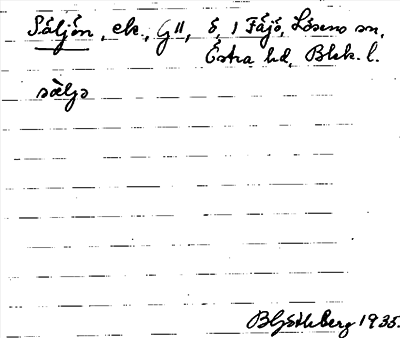 Säljön, ek., G 11, ö, i Fäjö, Lösens sn,
Östra hd, Blek. l.
sæljə
B Götlberg 1935.